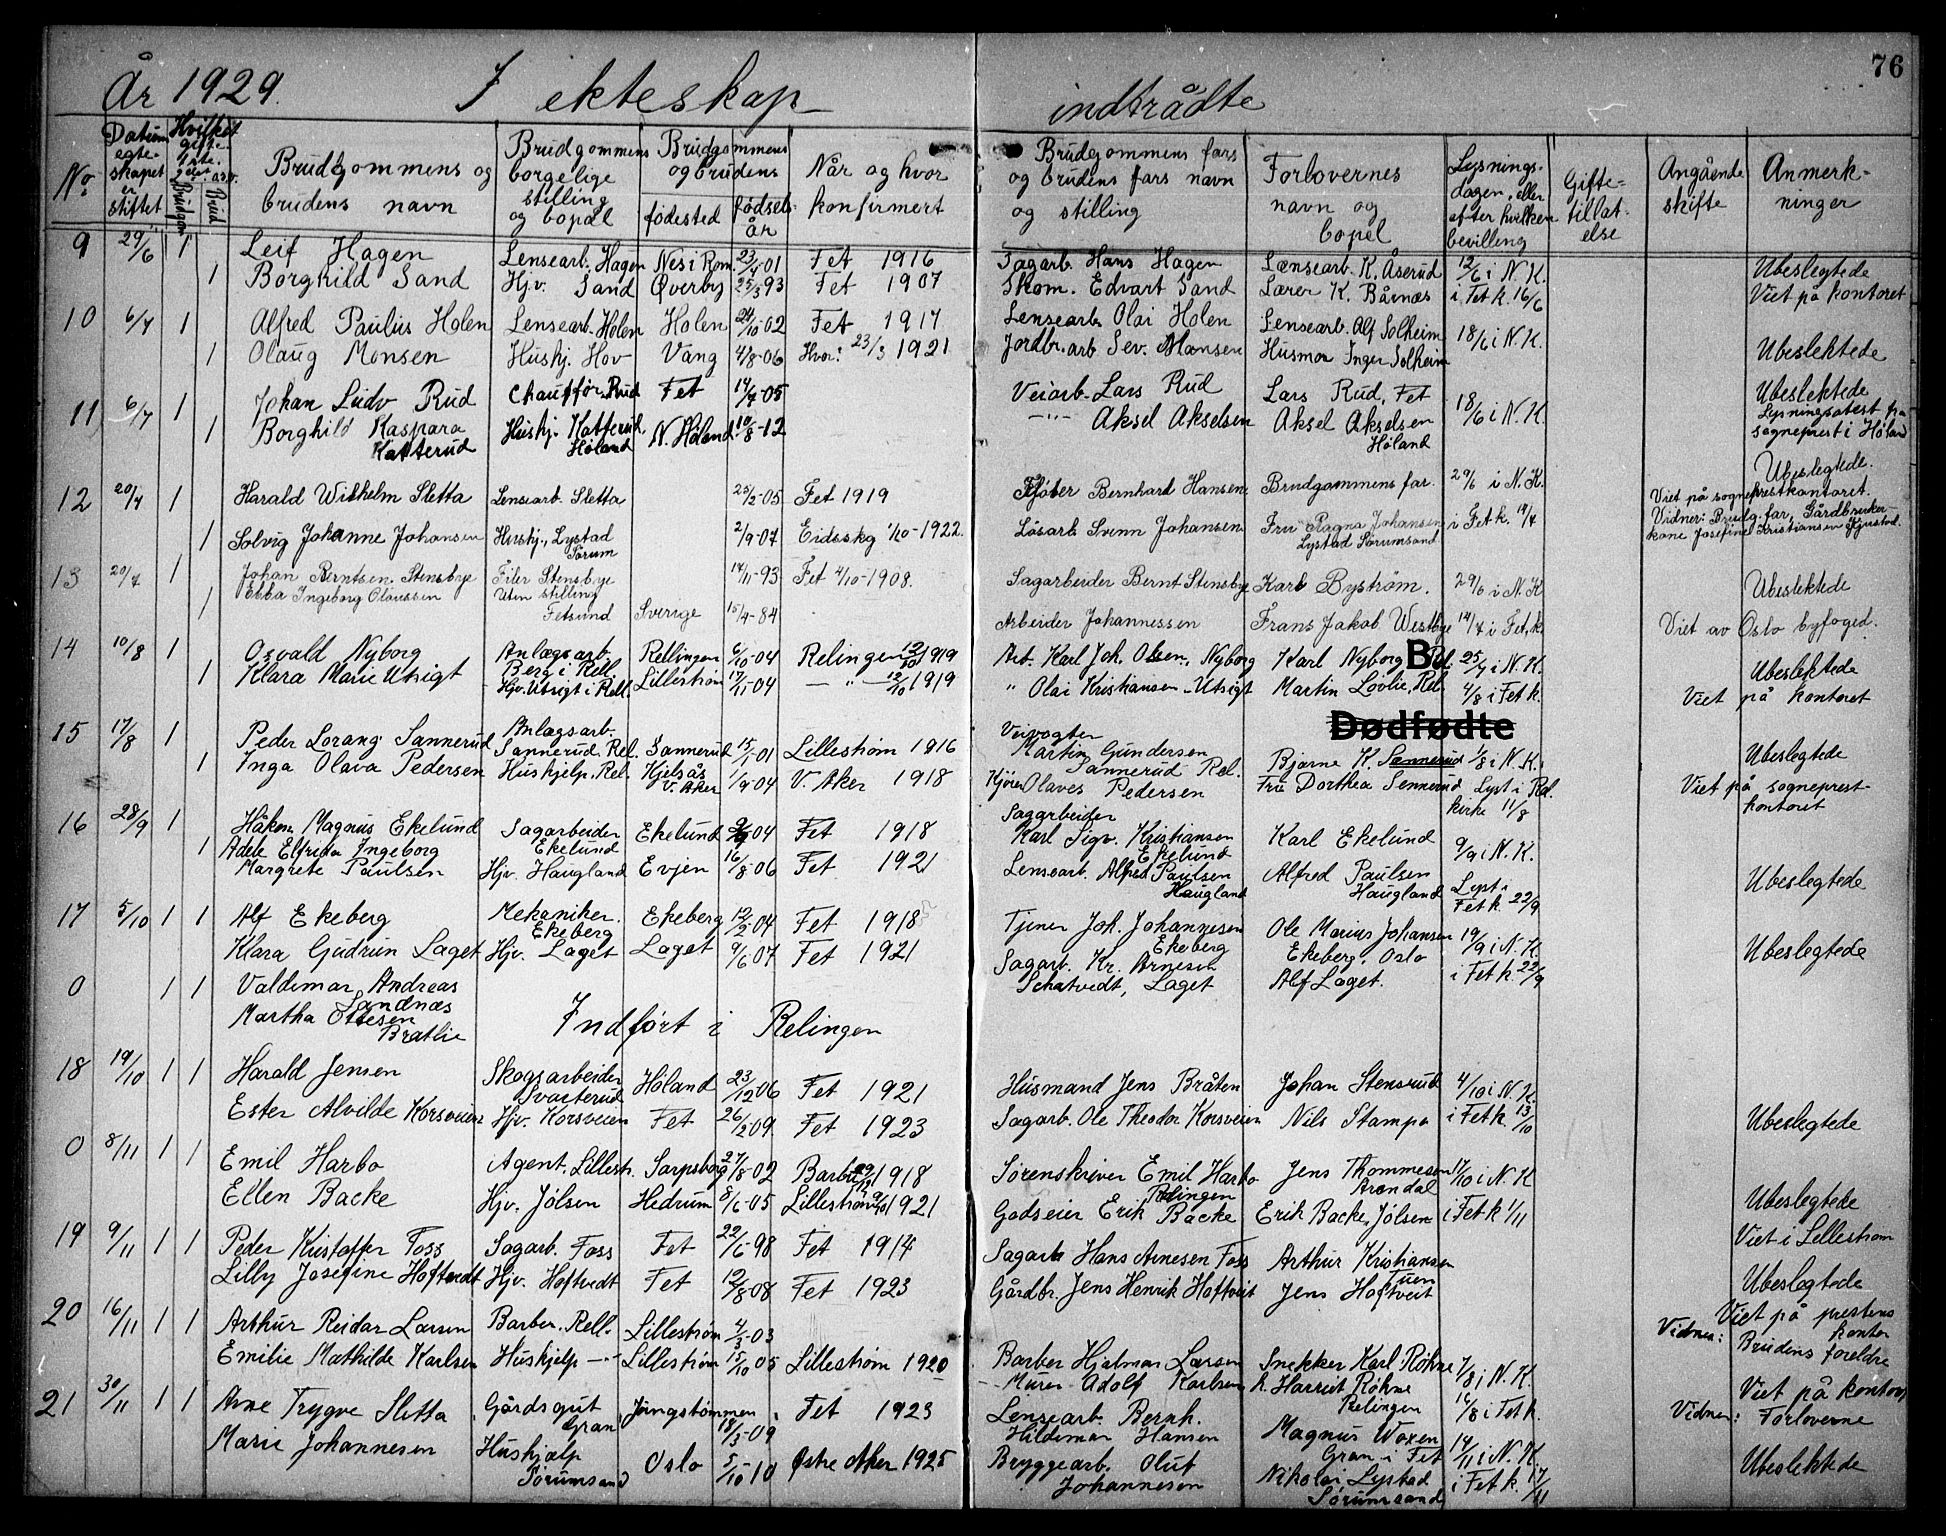 76
År 1929. I ekteskap indtrådte
No. Datum egteskapet er stiftet Hvilket gifte. 1ste. 2det a.s.v. Brudgom Brud Brudgommens og brudens navn Brudgommens borgelige stilling og bopæl Brudgommens og brudens fødested fødselsår Når og hvor konfirmert Brudgommens fars og brudens fars navn og stilling Forlovernes navn og bopel Lysningsdagen, eller efter hvilken bevilling Giftetillatelse Angående skifte Anmerkninger
9 29/6 1 Leif Hagen Lensearb. Hagen Nes i Rom. 23/4-01 Fet 1916 Sagarb. Hans Hagen Lænsearb. K. Åserud 12/6 i N.K. Ubeslegtede
1 Borghild Sand Hjv. Sand Øverby 25/3 93 Fet 1907 Skom. Edvart Sand Lærer K. Bårnæs i Fet k. 16/6 Viet på kontoret
10 6/7 1 Alfred Paulius Holen Lensearb. Holen Holen 24/10-02 Fet 1917 Lensearb. Olai Holen Lensearb. Alf Solheim 18/6 i N.K.
1 Olaug Monsen Hushj. Hov Vang 4/8-06 Hvor? 23/3 1921 Jordbr.arb. Sev. Monsen Husmor Inger Solheim Ubeslektede
11 6/7 1 Johan Ludv Rud Chauffør Rud Fet 14/7-05 Veiarb. Lars Rud Lars Rud, Fet 18/6 i N.K. Ubeslektede
1 Borghild Kaspara Katterud Hushj. Katterud, Høland N. Høland 10/8-12 —"— Aksel Akselsen Aksel Akselsen Høland Lysningsatest fra sogneprest i Høland
Ubeslegtede.
12 20/7 1 Harald Wilhelm Sletta Lensearb. Sletta 25/2-05 Fet 1919 Fløter Bernhard Hansen Brudgommens far. 29/6 i N.K. Viet på sogneprestkontoret.
1 Solvig Johanne Johansen Hushj., Lystad Sørum 2/9-07 Eidsskog 1/10-1922. Løsarb. Svenn Johansen Fru Ragna Johansen Lystad Sørumsand i Fet k. 14/7 Vidner: Brudg. far, Gårdbrukerkone Josefine Kristiansen
13 20/7 1 Johan Berntsen Stensbye Filer Stensbye 14/11-93 Fet 4/10-1908. Sagarbeider Bernt Stensbye Karl Byström. 29/6 i N.K Ubeslektede
1 Ebba Ingeborg Olaussen Uten stilling Fetsund Sverige 15/4-84 Arbeider Johannessen Frans Jakob Westbye 14/7 i Fet k. Viet av Oslo byfoged.
14 10/8 1 Osvald Nyborg Anlægsarb. Berg i Rell. Rellingen 6/10-04 Relingen 12/10 1919 Arb. Karl Joh. Olsen, Nyborg Karl Nyborg B Rel. 25/7 i N.K. Ubeslektede
1 Klara Marie Utsigt Hjv. Utsigt i Rell. Lillestrøm 17/11-04 — " — 12/10 1919 " Olai Kristiansen Utsigt Martin Løvlie, Rel. 4/8 i Fet k. Viet på kontoret
Dødfødte
15 17/8 1 Peder Lorang Sannerud Anlægsarb. Sannerud Rel. Sannerud 15/1-01 Lillestrøm 1916 Veivogter Martin Gundersen Sannerud Rel. Bjarne K. Sannerud 1/8 i N.K. Ubeslegtede
1 Inga Olava Pedersen Hushjelp. Rel. Kjelsås V. Aker 1/9 04 V. Aker 1918 Kjører Olaves Pedersen Fru Dorthea Sennerud Lyst i Rel. kirke 11/8 Viet på sogneprestkontoret
16 28/9 1 Håkon Magnus Ekelund Sagarbeider Ekelund Ekelund 04 Fet 1918 Sagarbeider Karl Sigv. Kristiansen Ekelund Karl Ekelund 9/9 i N.K.
1 Adele Elfrida Ingeborg Margrete Paulsen Hjv. Haugland Evjen 16/8 06 Fet 1921 Lensearb. Alfred Paulsen Haugland Alfred Paulsen Haugland Lyst i Fet k. 22/9 Ubeslegtede
17 5/10 1 1 Alf Ekeberg Mekaniker. Ekeberg Ekeberg 12/2-04 Fet 1918 Tjener Joh. Johannesen Ekeberg Ole Marius Johansen Ekeberg, Oslo 19/9 i N.K.
Klara Gudrun Laget Hjv. Laget Laget 9/6 07 Fet 1921 Sagarb. Kr. Arnesen Schatvedt, Laget Alf Laget. i Fet k 22/9 Ubeslegtede
0 1 1 Valdemar Andreas Sandnæs
Martha Ottesen Bratlie Indført i Relingen
18 19/10 1 1 Harald Jensen Skogsarbeider Svarterud Høland 23/12 06 Fet 1921 Husmand Jens Bråten Johan Stensrud 4/10 i N.K.
Ester Alvilde Korsveien Hjv. Korsveien Fet 26/2 09. Fet 1923 Sagarb. Ole Theodor Korsveien Nils Stampa i Fet k 13/10 Ubeslegtede
0 8/11 1 1 Emil Harbo Agent. Lillestr. Sarpsborg 27/8 02 Barbu 1918 Sorenskriver Emil Harbo Relingen Jens Thommesen Arendal 17/10 i N.K
Ellen Backe Hjv. Jølsen Hedrum 8/6-05 Lillestrøm 1921 Godseier Erik Backe Erik Backe, Jølsen i Fet k 1/11 Ubeslegtede
Viet i Lillestrøm
19 9/11 1 1 Peder Kristoffer Foss Sagarb. Foss Fet 22/6-98 Fet 1914 Sagarb Hans Arnesen Foss Arthur Kristiansen Tuen
Lilly Josefine Hoftvedt Hjv. Hoftvedt Fet 12/8 08 Fet 1923 Gårdbr. Jens Henrik Hoftveit Jens Hoftveit Ubeslegtede
20 16/11 1 1 Arthur Reidar Larsen Barber. Rell. Lillestrøm 4/3-03 Viet på prestens kontor
Emilie Mathilde Karlsen Hushjelp —"— Lillestrøm 15/10 05 Lillestrøm 1920 Barber Hjalmar Larsen Snekker Karl Røhne 7/8 i N.K. Vidner: Brudens foreldre
Murer Adolf Karlsen h. Harriet Røhne Relingen 16/8 i Fet k.
21 30/11 1 1 Arne Trygve Sletta Gårdsgut Gran Jongstømmen 18/3-09 Fet 1923 Lensearb. Bernh. Hildemar Hansen Magnus Woxen Gran i Fet 14/11 i N.K. Viet på kontoret Vidner: Forloverne
Marie Johannesen Hushjælp Sørumsand Oslo 5/10-10 Østre Aker 1925 Bryggearb. Oluf Johannesen Nikolai Lystad Sørumsand i Fet k. 17/11 Ubeslektede